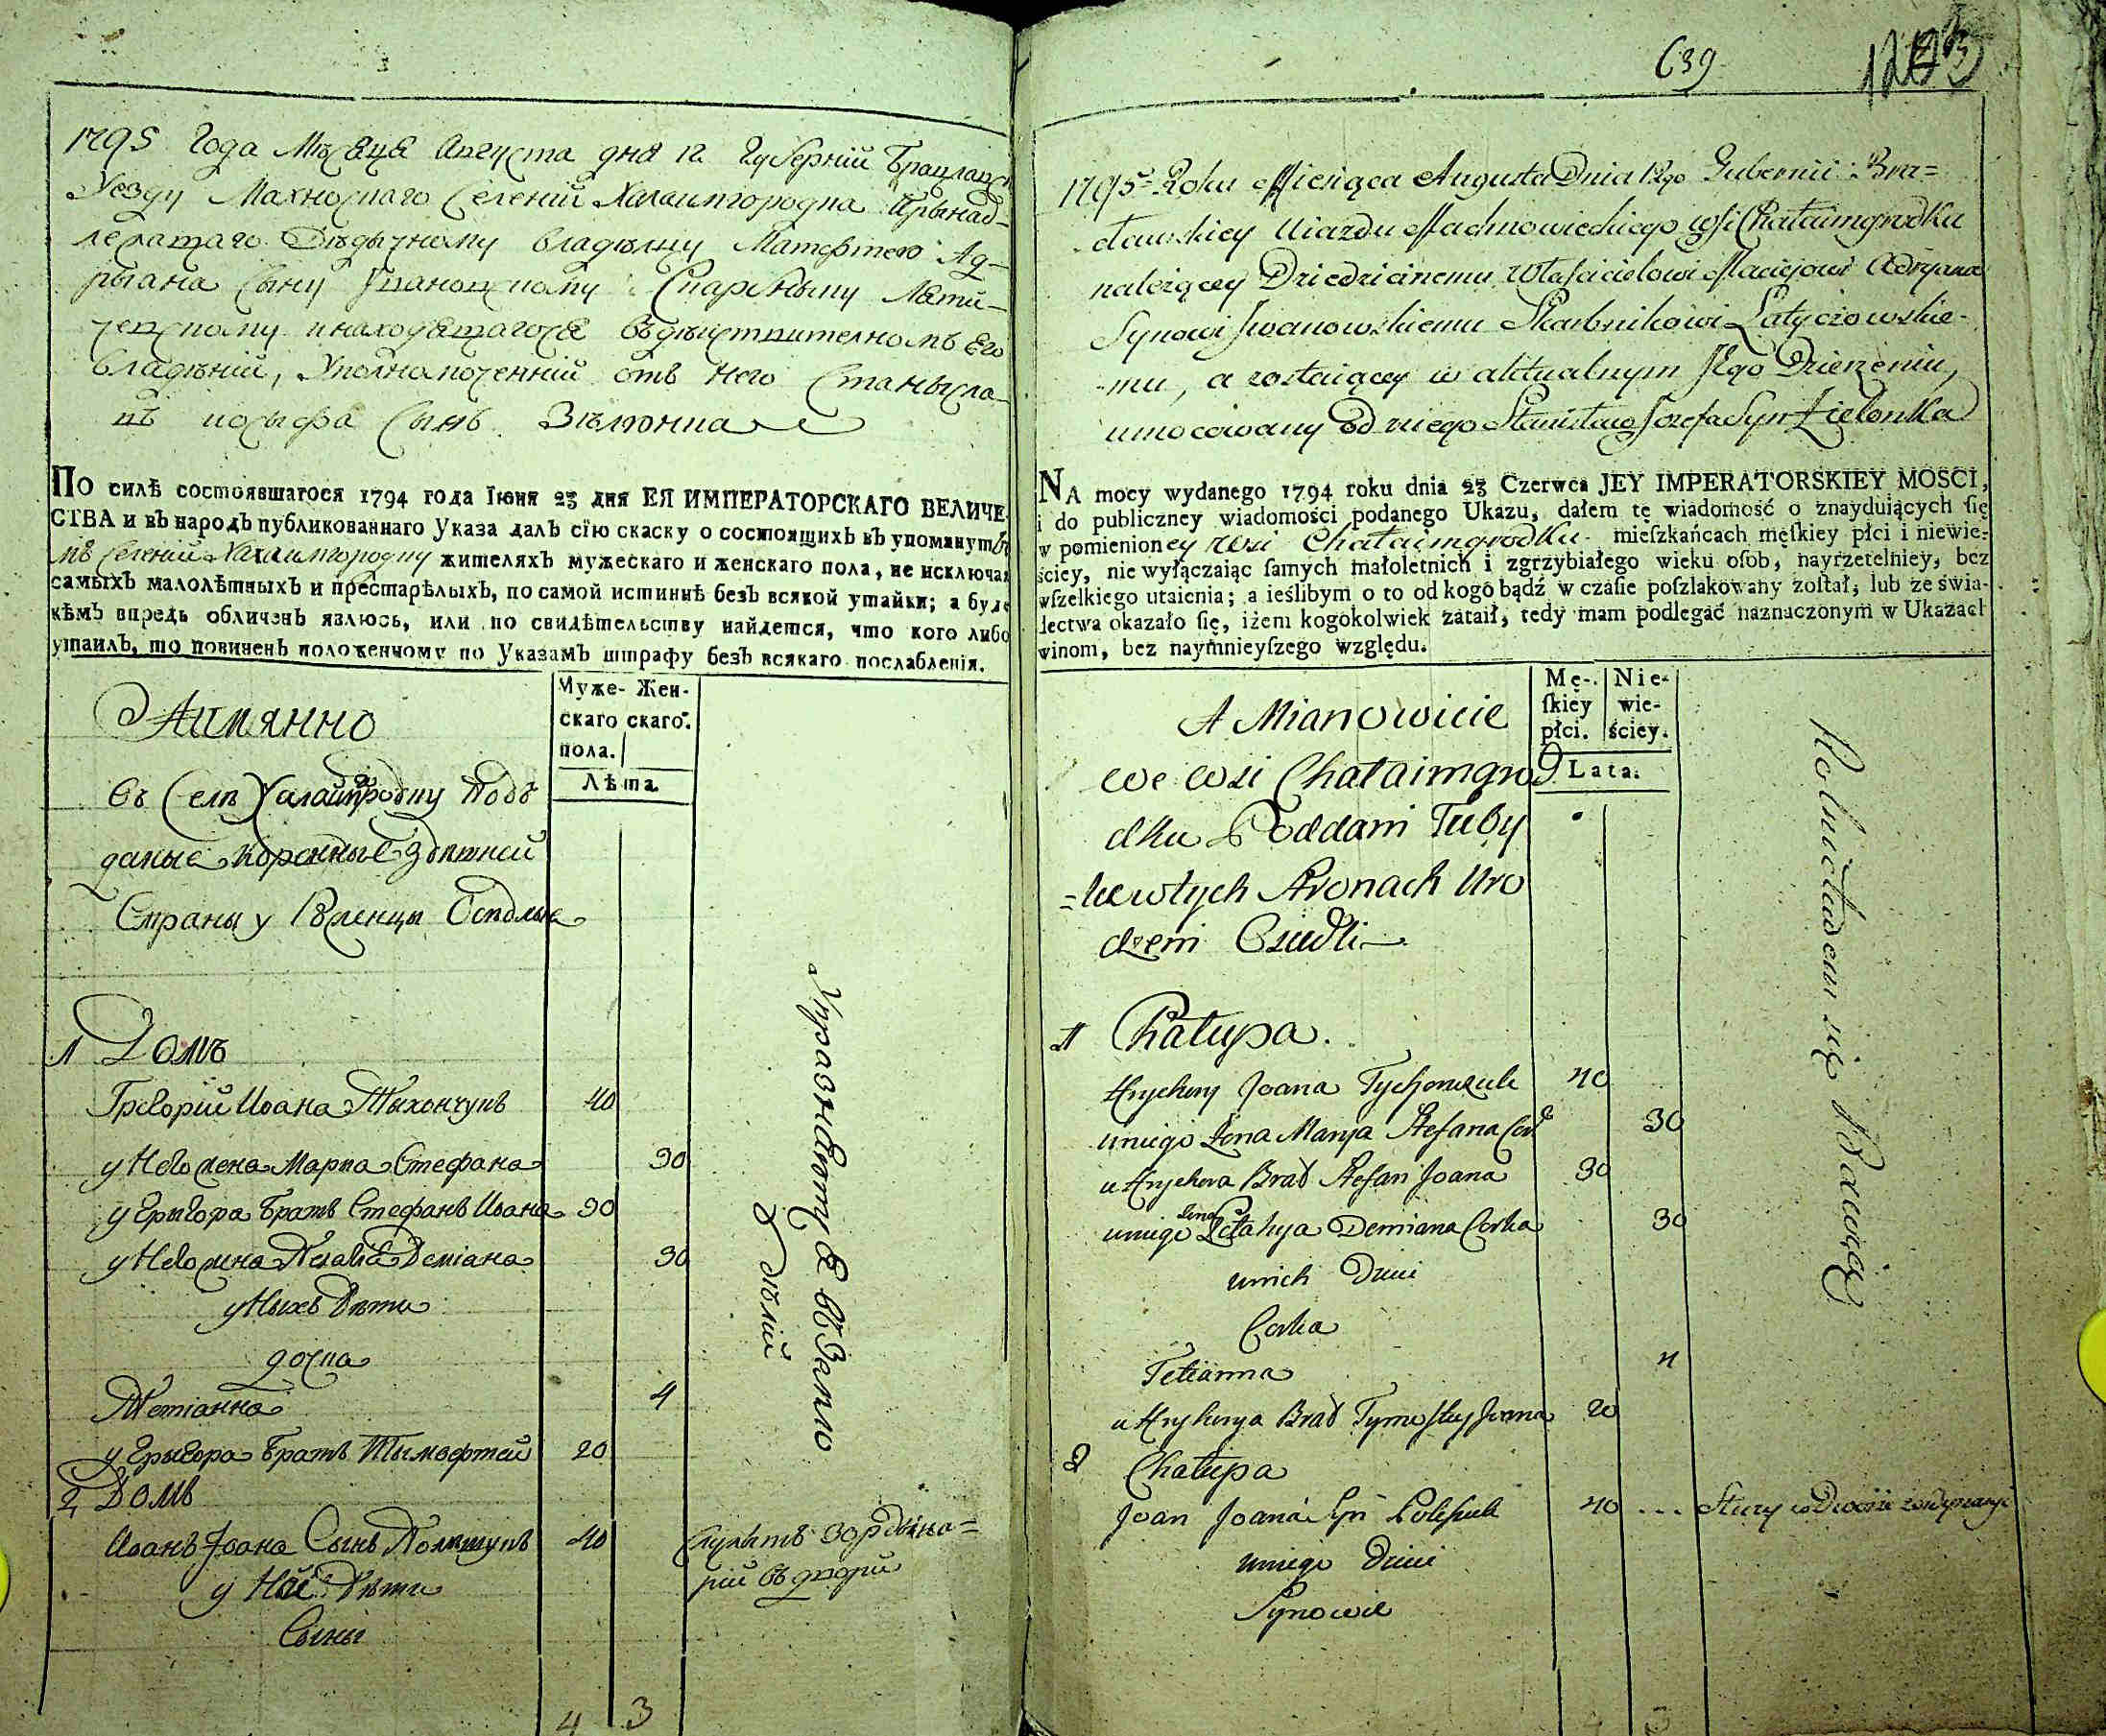 1795 Года Мѣсяца Августа дня 12 Губерніи Брацлавс
Уезду Махновскаго Селеній Халаимгородка Прынад-
лежащаго Дѣдычному владѣлцу Матефтею Ад-
рыана Сыну Ивановскому Скарбныку Лѣти-
чевскому инаходящагося въдѣйствителномъ Его
владѣній, Уполномоченній отъ Него Станысла-
въ иосыфа Сынъ Зѣлюнка
По силѣ состоявшагося 1794 года Іюня 23 дня ЕЯ ИМПЕРАТОРСКАГО ВЕЛИЧЕ-
СТВА и въ народъ публикованнаго Указа далъ сію скаску о состоящихъ въ упомянутѣ
мъ Селеній Халаимгородку жителяхъ мужескаго и женскаго пола, не исключая
самыхъ малолѣтныхъ и престарѣлыхъ, по самой истиннѣ безъ всякой утайки; а буде
кѣмъ впредь обличенъ явлюсь, или по свидѣтельству найдется, что кого либо
утаилъ, то повиненъ положенному по Указамъ штрафу безъ всякаго послабленія.
Муже- Жен-
скаго скаго.
пола.
Лѣта.
Аимянно
въ Селѣ Халаимгродку Подъ
даные коренные здѣшней
Страны уроженцы Осѣдлые
1 Домъ
Грегорій Иоана Тыхончукъ 40
у Него жена Мария Стефана 30
у Грыгора братъ Стефанъ Иоана 30
у Него жена Пелагія Деміана 30
у Ныхъ Дѣти
дочка
Тетіанна 4
у Грыгора братъ Тымофтей 20
2 Домъ
Иоанъ Иоана Сынъ Полищукъ 40
Служитъ зордына=
рій въ дворѣ
у Него Дѣти
Сыны
4 3
Упражняются въ Земле
дѣлій
639
1795 Roku Miesiąca Augusta Dnia 12go Gubernii Bra=
cławskiey Uiazdu Machnowieckiego wsi Chałaimgrodku
należącey Dziedzicznemu Właścicielowi Maciejowi Adryana
Synowi Iwanowskiemu Skarbnikowi Latyczowskie-
-mu, a zostaiącey w aktualnym JEgo Dzierżeniu,
umocowany od niego Stanisław Jozefa Syn Zielonka
NA mocy wydanego 1794 roku dnia 23 Czerwca JEY IMPERATORSKIEY MOSCI,
i do publiczney wiadomości podanego Ukazu, dałem tę wiadomość o znayduiących ſię
w pomienioney wsi Chałaimgrodku mieſzkańcach męſkiey płci i niewie-
ściey, nie wyłączaiąc ſamych małoletnich i zgrzybiałego wieku oſob, nayrzetelniey, bez
wſzelkiego utaienia; a ieślibym o to od kogo bądź w czaſie poſzlakowany zoſtał, lub ze świa-
lectwa okazało ſię, iżem kogokolwiek zataił, tedy mam podlegać naznaczonym w Ukazach
winom, bez naymnieyſzego względu.
Mę- Nie-
ſkiey wie-
płci. ściey.
Lata.
A Mianowicie
we wsi Chałaimgro
dku Poddani Tuby
=lce w tych stronach Uro
dzeni Osiedli
1 Chałupa.
Hryhory Joana Tychonczuk 40
u niego Żona Marya Stefana Cor 30
u Hryhora Brat Stefan Joana 30
u niego żona Pelahya Demiana Corka 30
u nich Dzieci
Corka
Tetianna 4
u Hryhorya Brat Tymoftey Joana 20
2 Chałupa
Joan Joana Syn Poliszuk 40 ... Służy w Dworze zordynaryi
u niego Dzieci
Synowie
Rolnictwem się Bawią